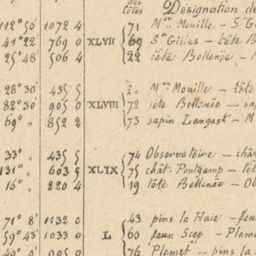 des côtés Désignation de
112° 50' 1072 4 71 Mme Mouille - St G
41° 22 769 0 XLVII 69 St Gilles - tête B
25° 48 506 4 22 tête Bellenæo -
28° 30' 435 5 Mme Mouille - tête
82° 30' 905 0 XLVIII 72 tête Bellenæo - sa
69° " 852 2 73 sapin Langast - M
33° " 435 5 74 Observatoire - chât
131° " 603 5 XLIX 75 chât. Pontkamp - têt
16° " 220 4 19 tête Bellenæo - Ob
71° 8' 1132 0 43 pins la Haie - feu
59° 43' 1033 0 L 60 feux Scep - Plem
905 0 76 Plemet - pins la